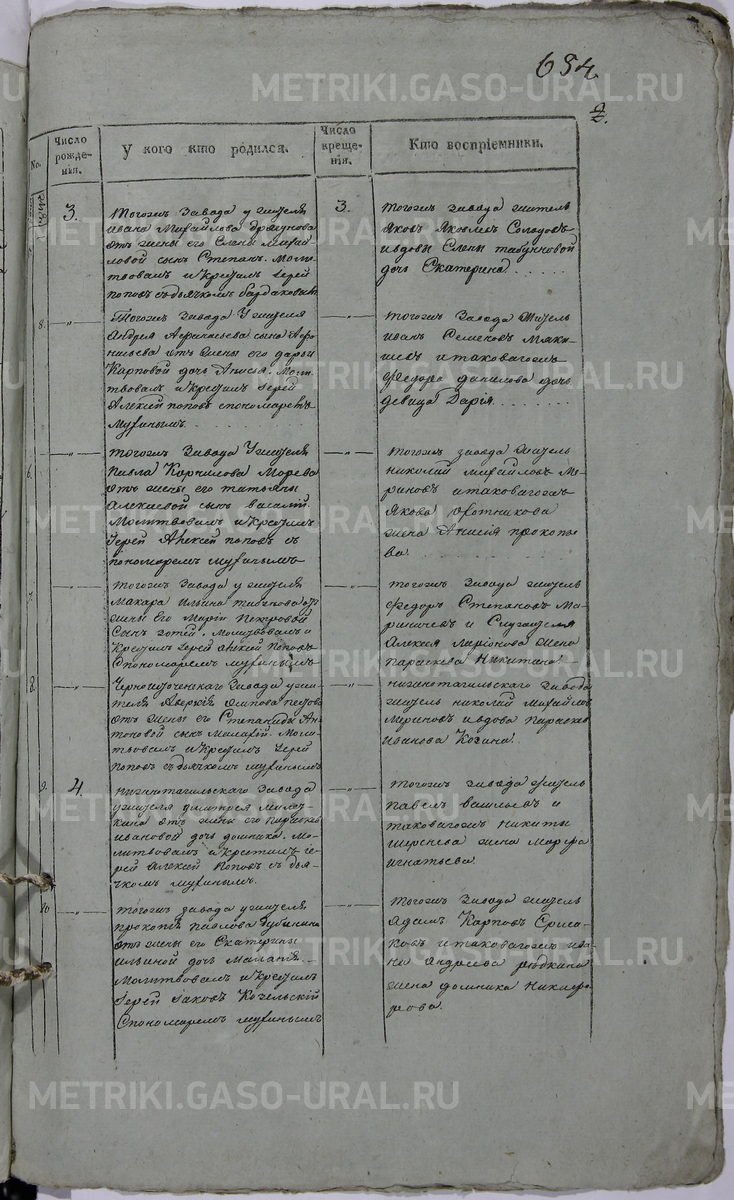 634
2.
No.
Число рожде-
нія.
У кого кто родился.
Число креще-
нія.
Кто воспріемники.
3.
Тогожъ завода у жителя
Ивана Михайлова
отъ жены его Елены Михай
ловой сынъ Степанъ. Моли
твовалъ и крестилъ іерей
Поповъ съ дьячкомъ
3.
Тогожъ завода житель
Яковъ Яковлевъ Солодовъ
вдовы Елены
дочь Екатерина
Тогожъ завода у жителя
Андрея Афанасьева сына Афо
насьева отъ жены его Дарьи
Карповой дочь Анисья. Моли
твовалъ и крестилъ іерей
Алексій Поповъ спономаремъ
Мухинымъ
Тогожъ завода житель
Иванъ Семеновъ Мяки
шевъ итаковагожъ
Федора Данилова дочь
девица Дарія
6.
Тогожъ завода у жителя
Павла Корнилова Морева
отъ жены его Татьяны
Алексеевой сынъ Василій.
Молитвовалъ и крестилъ
іерей Алексій Поповъ съ
пономаремъ Мухинымъ
Тогожъ завода житель
Николай Михайловъ Ме
риновъ итаковагожъ
Якова Охотникова
жена Анисія Прокопь
ва.
7.
Тогожъ завода у жителя
Макара Ильина
жены его Маріи Петровой
сынъ Фотей. Молитвовалъ и
крестилъ іерей Алексій Поповъ
спономаремъ Мухинымъ
Тогожъ завода житель
Федоръ Степановъ Ма
риничевъ и служителя
Алексея Ларіонова жена
Параскева Никитина
8.
Черноисточенскаго завода у жи
теля Аверкія Осипова
отъ жены его Степаниды Ан
тоновой сынъ Макарій. Моли
твовалъ и крестилъ іерей
Поповъ съ дьячкомъ Мухинымъ
Нижнетагильскаго завода
житель Николай Михайловъ
Мериновъ ивдова Параскева
Иванова Козина.
9.
4.
Нижнетагильскаго завода
у жителя Димитрея
отъ жены его Параскевы
Ивановой дочь Домника. Мо
литвовалъ и крестилъ іе
рей Алексій Поповъ съ дья
чкомъ Мухинымъ.
Тогожъ завода житель
Павелъ и
таковагожъ Никиты
жена Марфа
Игнатьева.
10
Тогожъ завода у жителя
Прокопья Павлова Дубинина
отъ жены его Екатерины
Ильиной дочь Маланія.
Молитвовалъ и крестилъ
іерей Іаковъ Кочельскій
спономаремъ Мухинымъ
Тогожъ завода житель
Адамъ Карповъ Ерма
ковъ итаковагожъ Ива
на Андреева Редкина
жена Домника Никифо
рова.
METRIKI.GASO-URAL.RU
METRIKI.GASO-URAL.RU
METRIKI.GASO-URAL.RU
METRIKI.GASO-URAL.RU
METRIKI.GASO-URAL.RU
METRIKI.GASO-URAL.RU
METRIKI.GASO-URAL.RU
METRIKI.GASO-URAL.RU